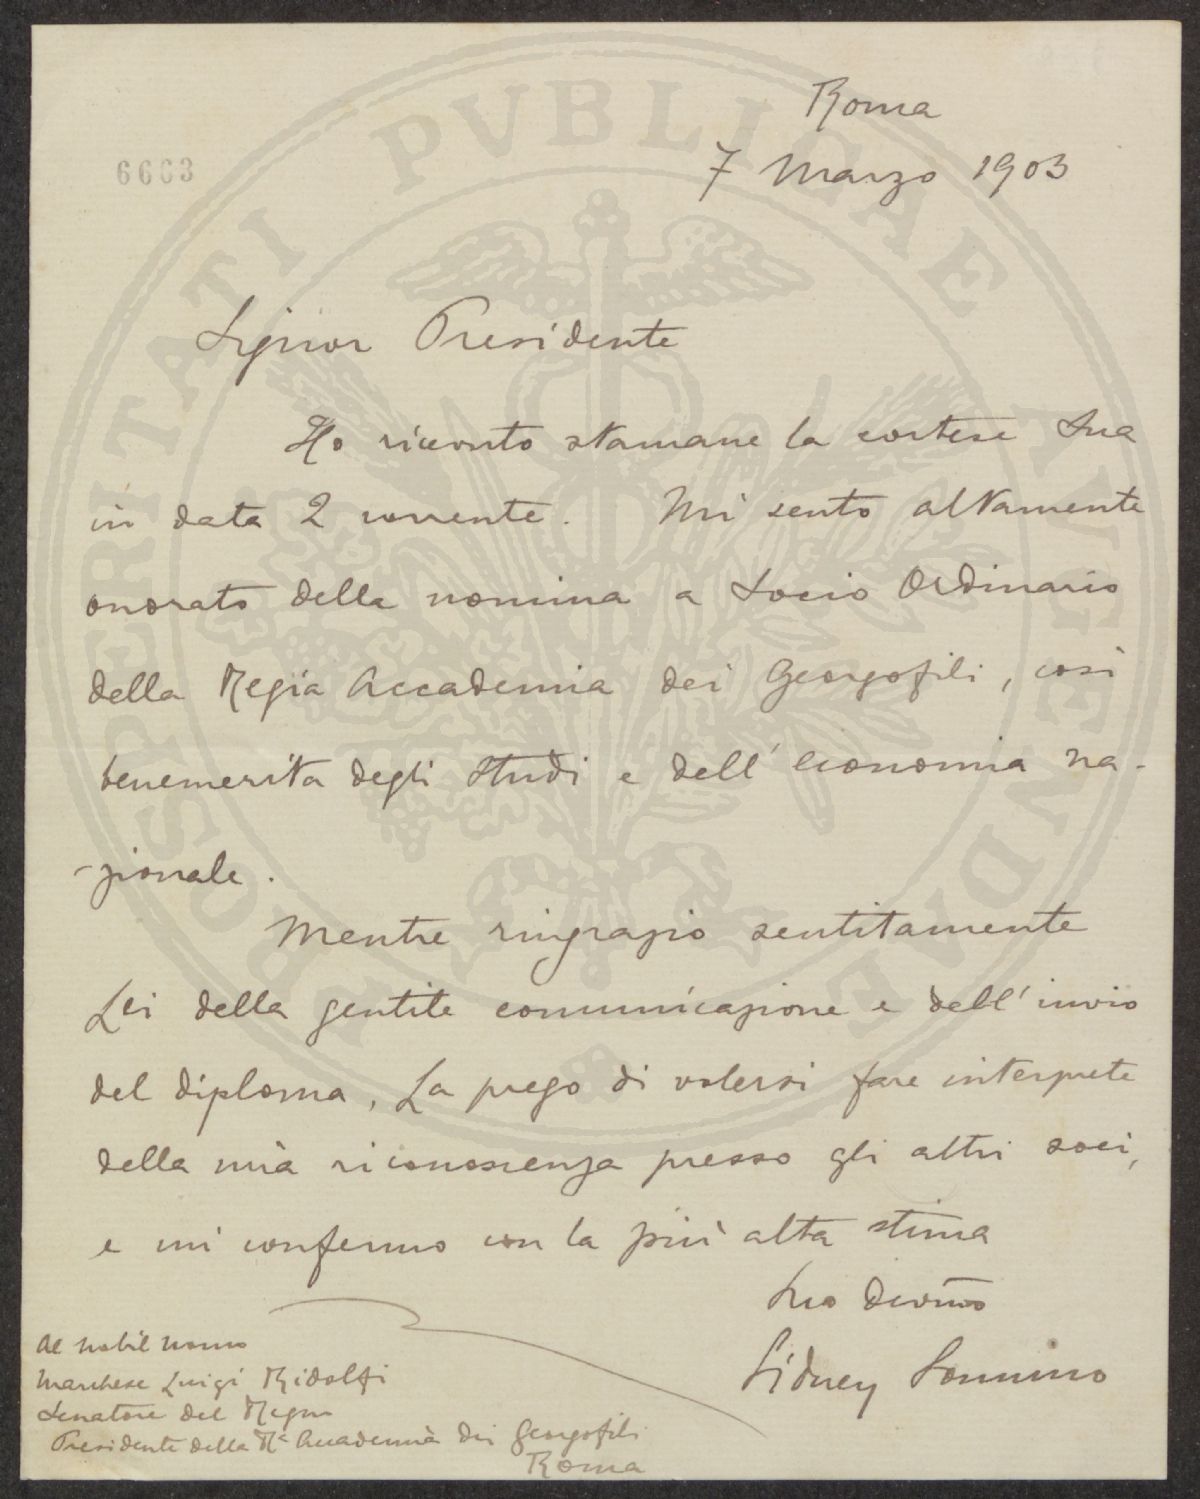 Roma
7 Marzo 1903
6603
Signor Presidente
Ho ricevuto stamane la cortese Sua
in data 2 corrente. Mi sento altamente
onorato della nomina a Socio Ordinario
della Regia Accademia dei Georgofili, così
benemerita degli studi e dell'economia na-
-zionale.
Mentre ringrazio sentitamente
Lei della gentile comunicazione e dell'invio
del diploma, La prego di volersi fare interprete
della mia riconoscenza presso gli altri soci,
e mi confermo con la più alta stima
Suo Devmo
Sidney Sonnino
Al nobil uomo
Marchese Luigi Ridolfi
Senatore del Regno
Presidente della Ra Accademia dei Georgofili
Roma
PROSPERITATI PVBLICAE AVGENDAE